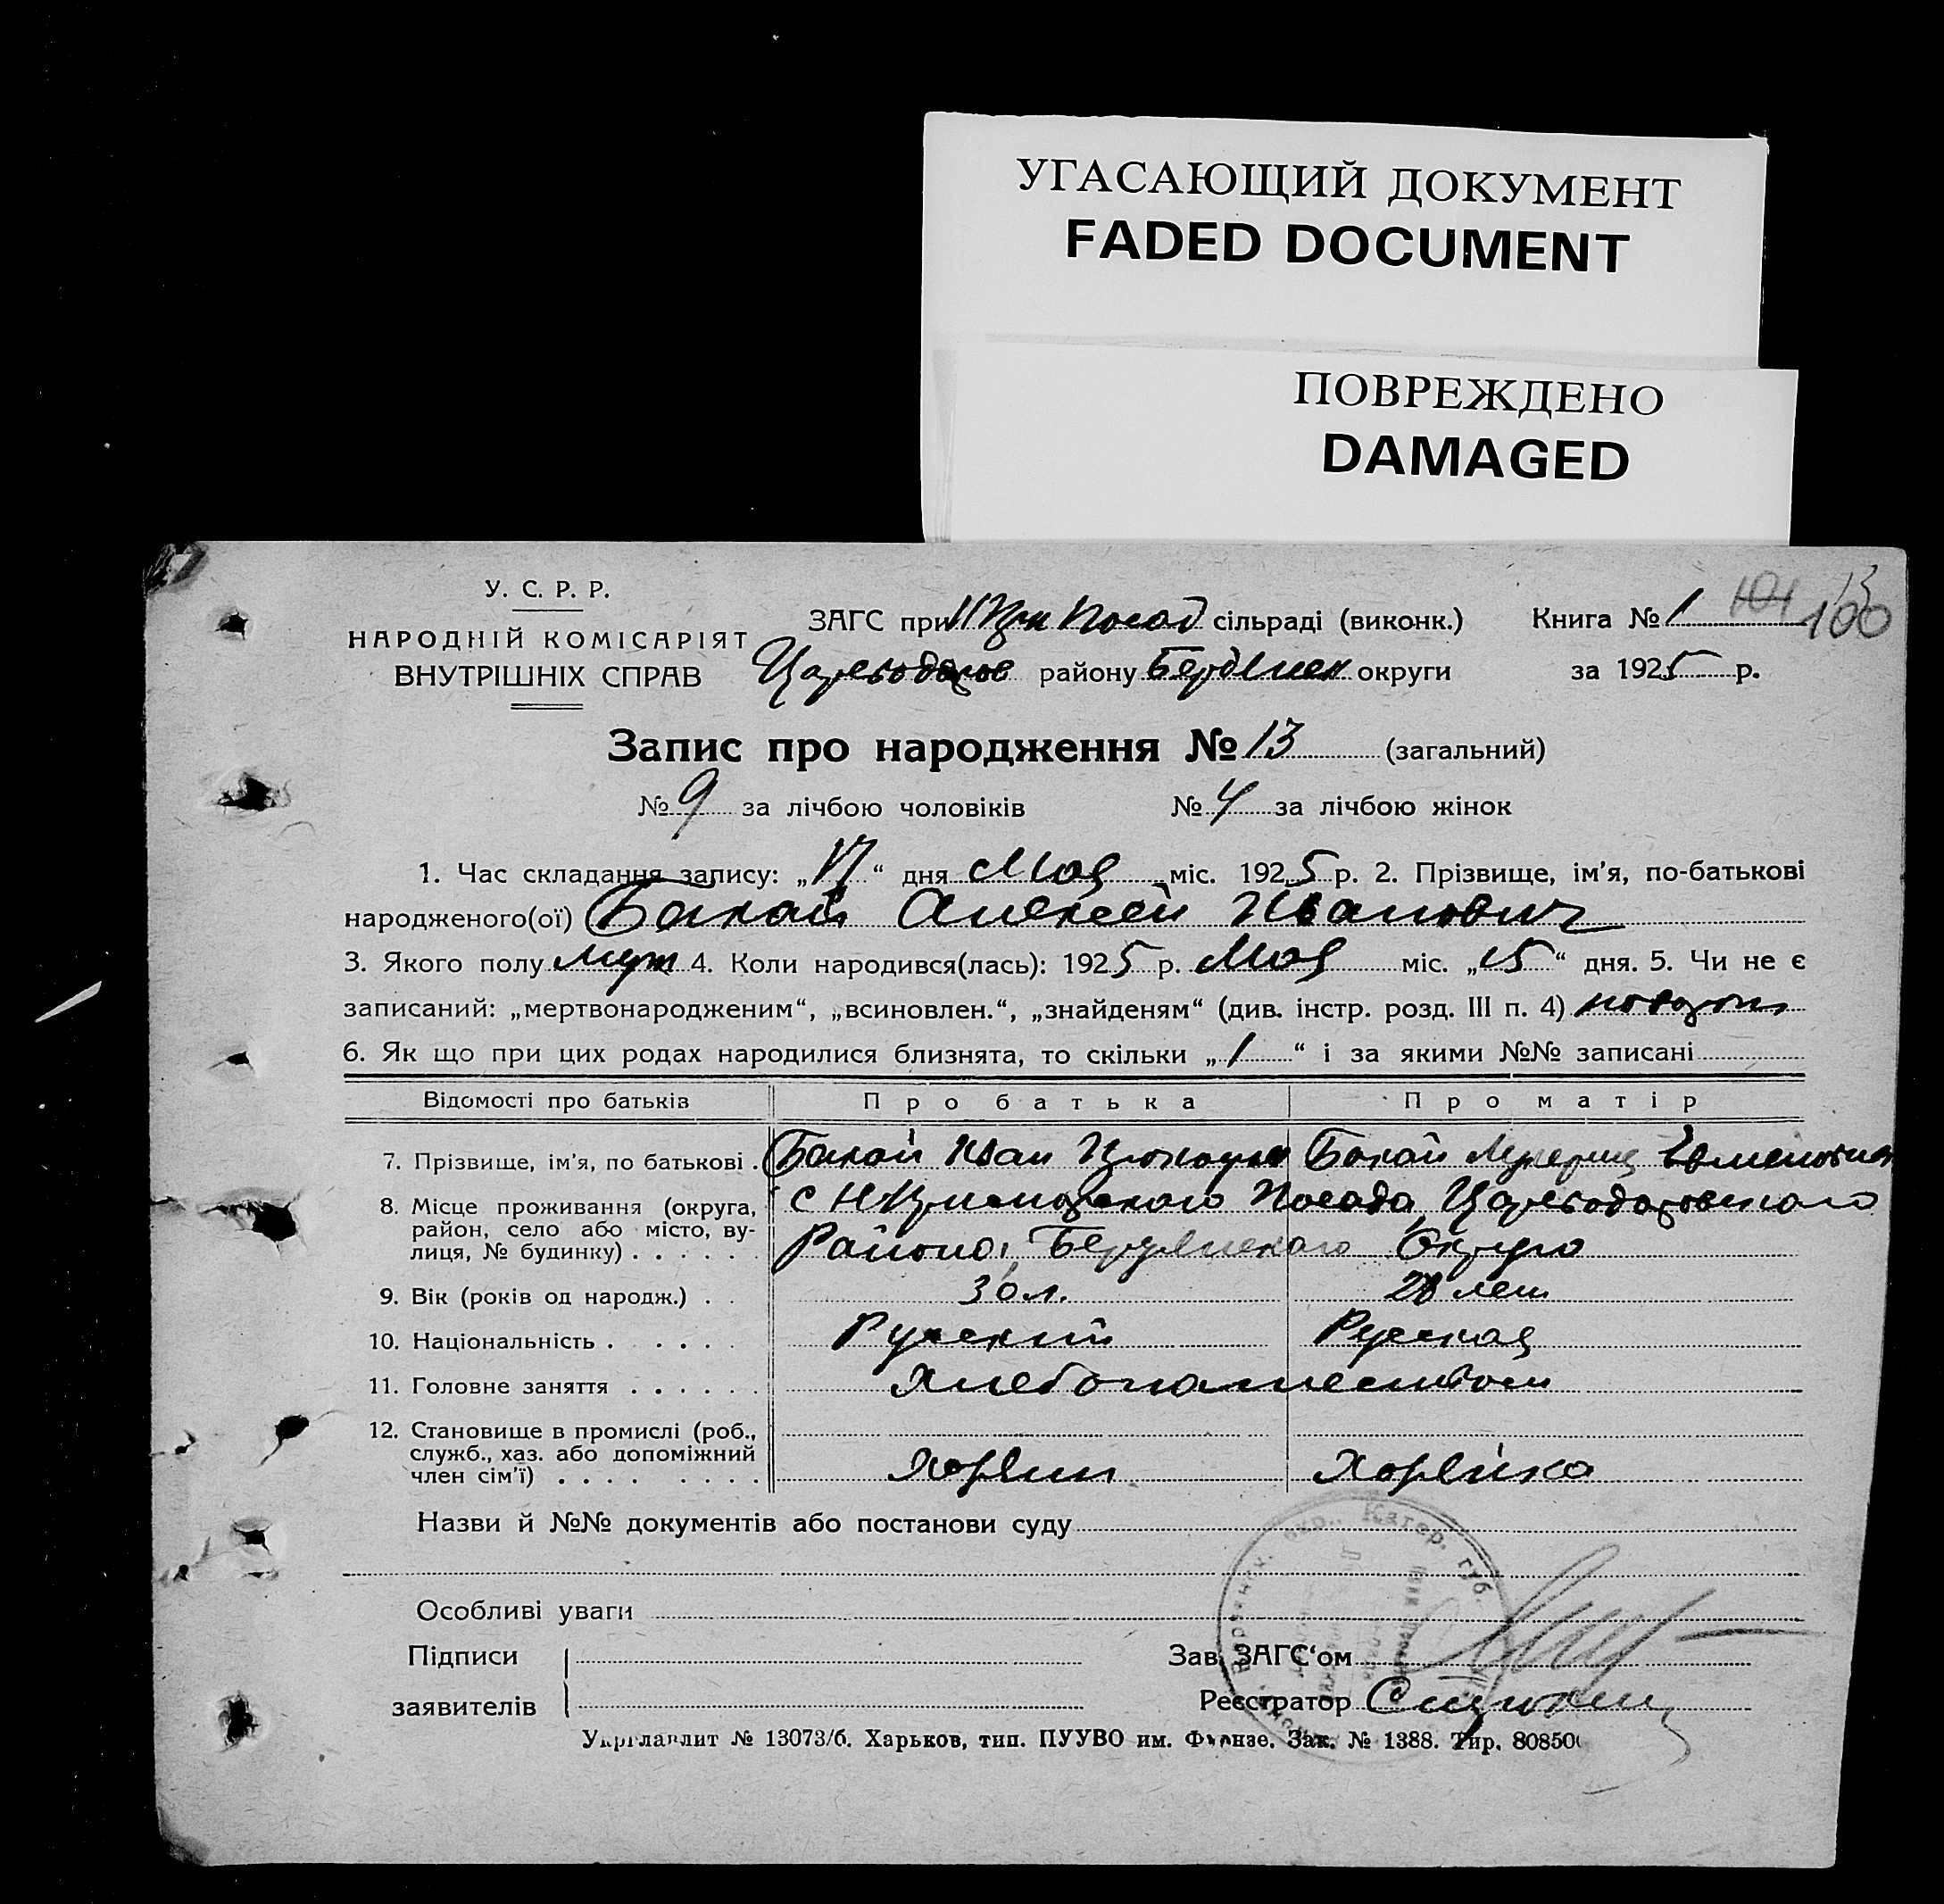 УГАСАЮЩИЙ ДОКУМЕНТ
FADED DOCUMENT
ПОВРЕЖДЕНО
DAMAGED
У. С. Р. Р.
НАРОДНІЙ КОМІСАРІЯТ
ВНУТРІШНІХ СПРАВ
ЗАГС при Посад сільраді (виконк.)
району Бердянск округи
Книга № 1 101 100 13
за 1925 р.
Запис про народження № 13 (загальний)
№ 9 за лічбою чоловіків № 4 за лічбою жінок
1. Час складання запису: „17“ дня Мая міс. 1925 р. 2. Прізвище, ім'я, по-батькові
народженого(ої) Бакай Алексей Иванович
3. Якого полу муж 4. Коли народився(лась): 1925 р. Мая міс. „15“ дня. 5. Чи не є
записаний: „мертвонародженим“, „всиновлен.“, „знайденям“ (див. інстр. розд. III п. 4)
6. Як що при цих родах народилися близнята, то скільки „1“ і за якими №№ записані
Відомості про батьків Про батька Про матір
7. Прізвище, ім'я, по батькові . Бакай Иван Бакай
8. Місце проживання (округа, район, село або місто, вулиця, № будинку) . . . . . . с Посада, Цареводаровского
Района, Бердянского Округа
9. Вік (років од народж.) . 30 л. 28 лет
10. Національність . . . . . Русский Русская
11. Головне заняття . . . . . . Хлебопашеством
12. Становище в промислі (роб., служб., хаз. або допоміжний член сім'ї) . . . . . . . . Хозяин Хозяйка
Назви й №№ документів або постанови суду
Особливі уваги
Підписи
заявителів
Зав. ЗАГС‘ом
Реєстратор
окр., Катер. губ.
Укрглавлит № 13073/б. Харьков, тип. ПУУВО им. Фрунзе. Зак. № 1388. Тир. 80850